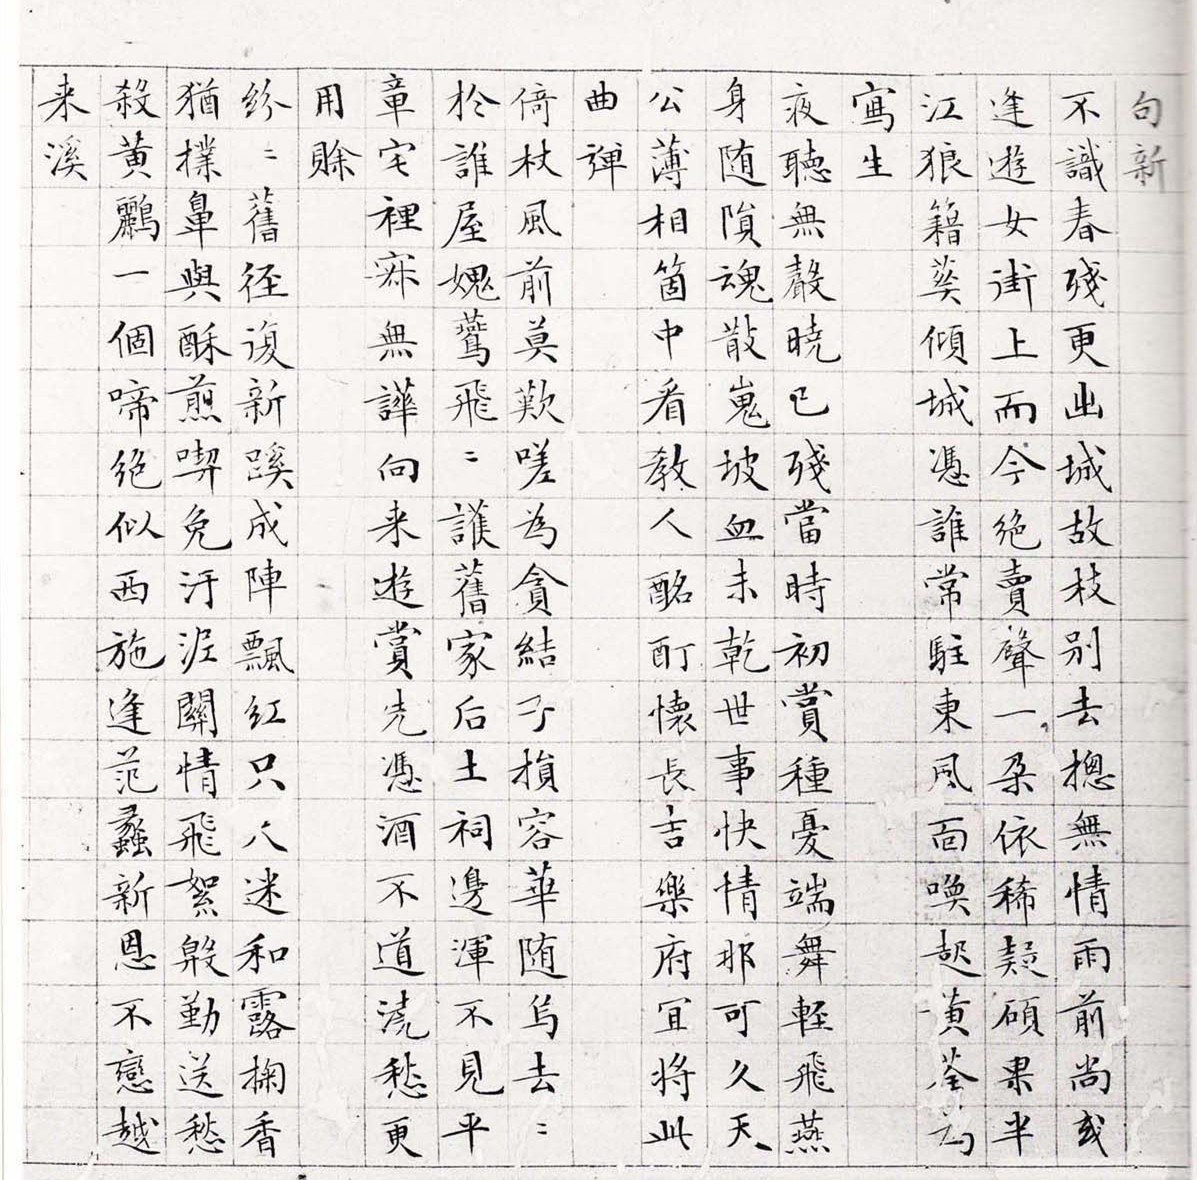 句新
不識春殘更出城故枝別去摠無情雨前尚或
逢遊女街上而今絕賣聲一朶依稀疑碩果半
江狼籍葬傾城憑誰常駐東風面喚起黃荃為
寫生
夜聽無聲曉已殘當時初賞種憂端舞輕飛燕
身随隕魂散嵬坡血未乾世事快情那可久天
公薄相箇中看教人酩酊懷長吉樂府宜將此
曲彈
倚杖風前莫歎嗟為貪結子損容華随烏去〻
於誰屋媿鶯飛〻護舊家后土祠邊渾不見平
章宅裡寂無譁向来遊賞先憑酒不道澆愁更
用賒
紛〻舊徑復新蹊成陣飄紅只人迷和露掬香
猶撲鼻與酥煎喫免汙泥關情飛絮殷勤送愁
殺黃鸝一個啼絕似西施逢范蠡新恩不戀越
来溪